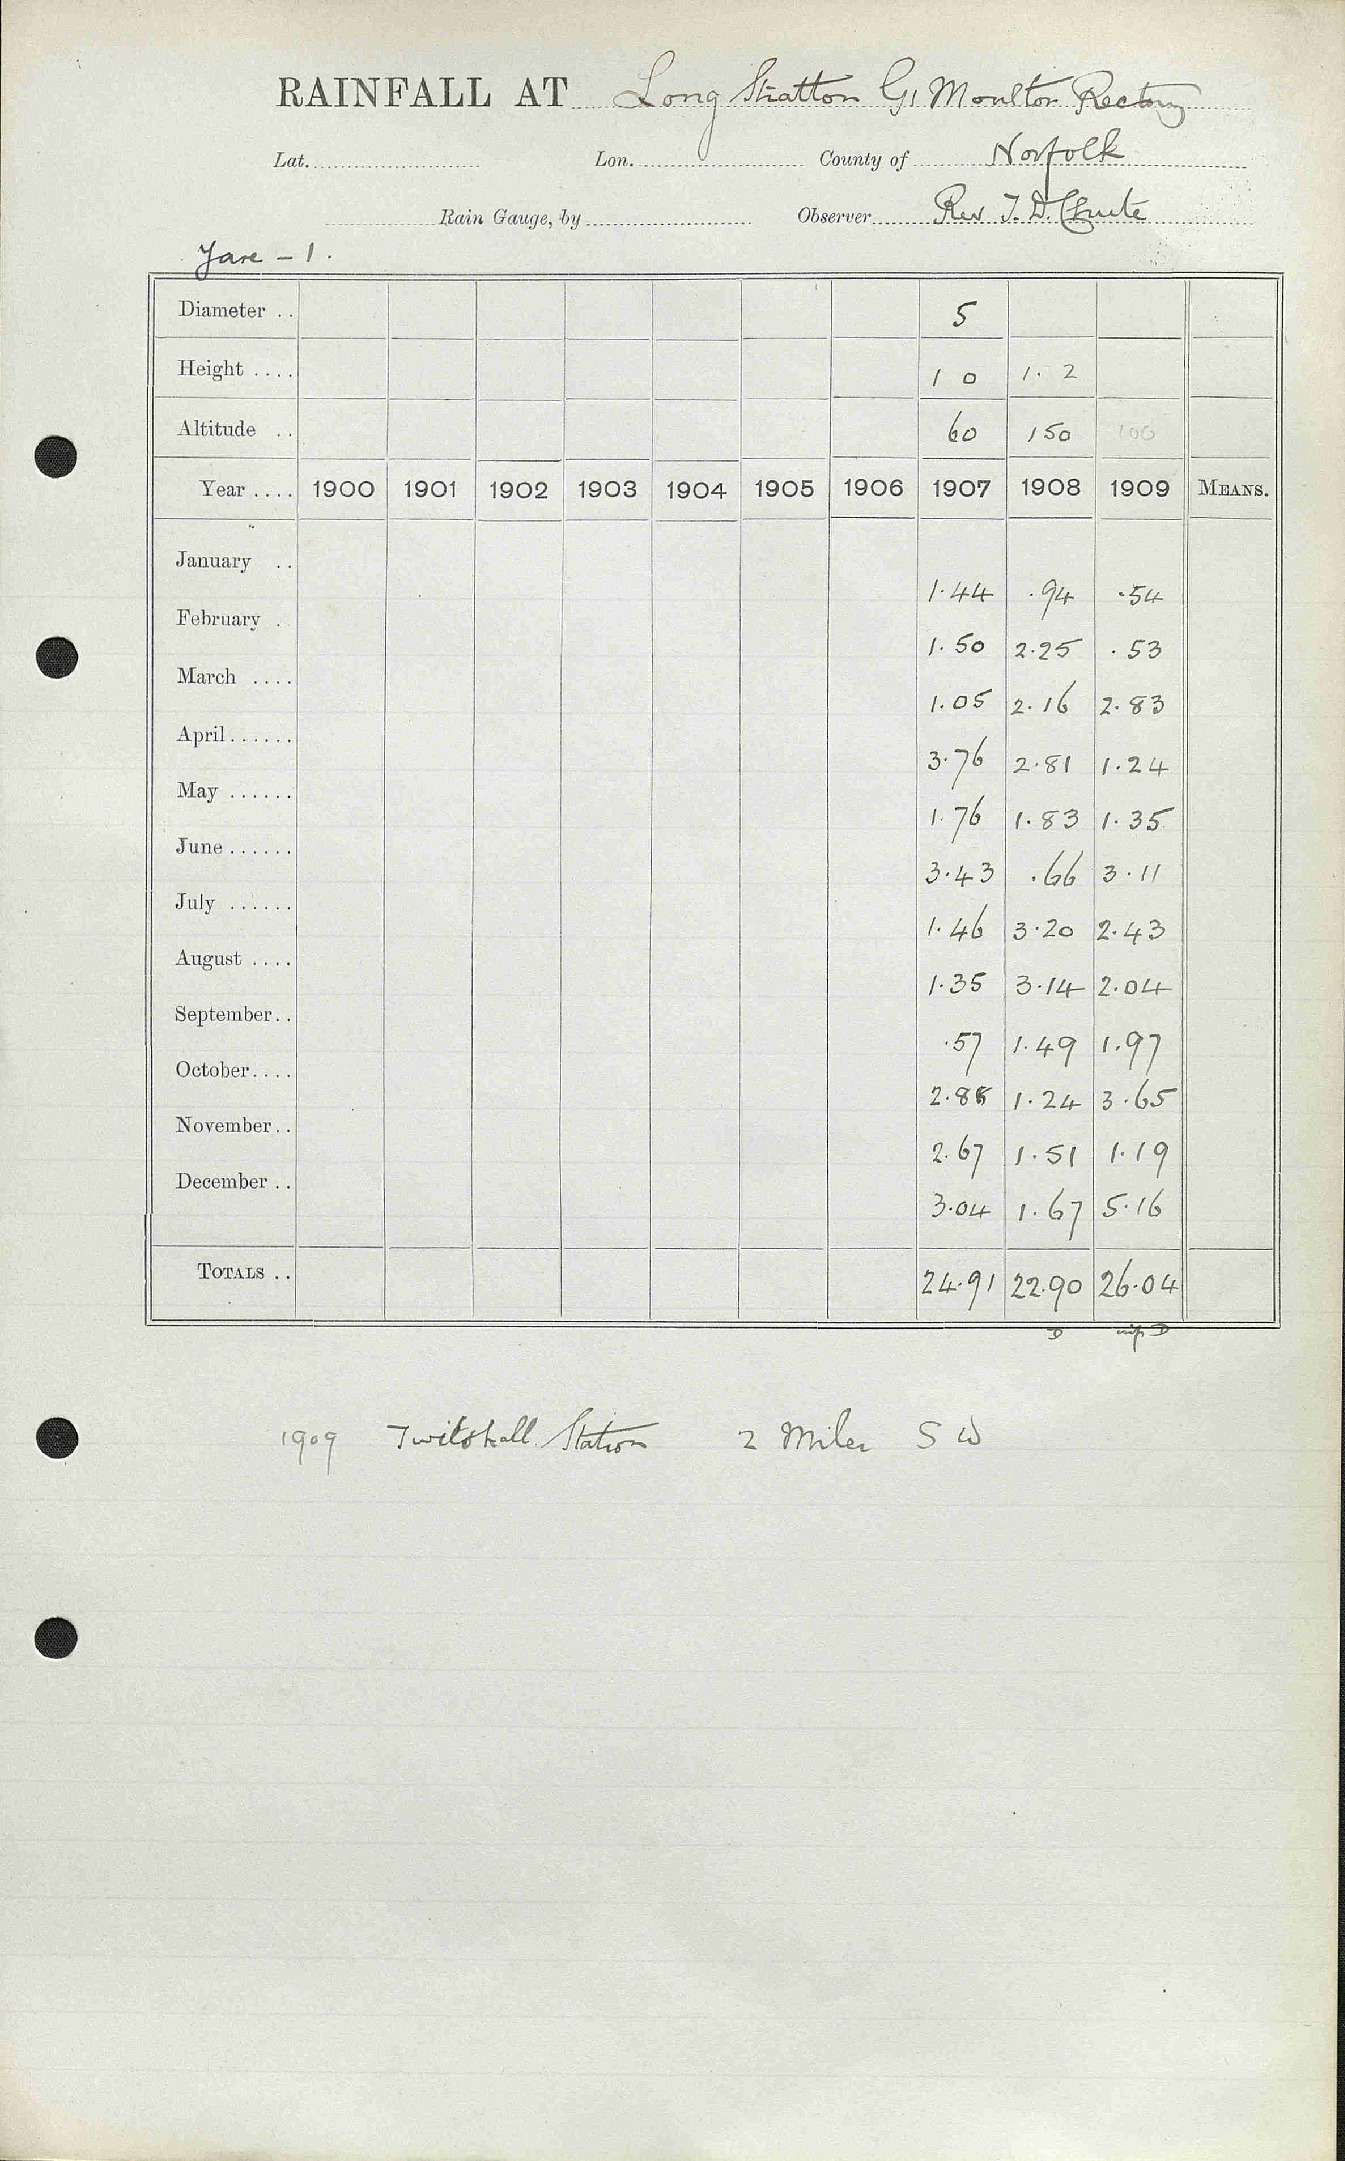 RAINFALL AT Long Stratton Gt Moulton Rectory
Lat. Lon. County of Norfolk
Rain Gauge, by Observer Rev J. D. Chute
Yare - 1.
Diameter .. 5
Height .... 1 0 1. 2
Altitude .. 60 150 100
Year .... 1900 1901 1902 1903 1904 1905 1906 1907 1908 1909 MEANS.
January .. 1.44 .94 .54
February . 1.50 2.25 .53
March .... 1.05 2.16 2.83
April...... 3.76 2.81 1.24
May ...... 1.76 1.83 1.35
June...... 3.43 .66 3.11
July ...... 1.46 3.20 2.43
August .... 1.35 3.14 2.04
September.. .57 1.49 1.97
October.... 2.88 1.24 3.65
November.. 2.67 1.51 1.19
December .. 3.04 1.67 5.16
TOTALS .. 24.91 22.90 26.04
D D
1909 Twitshall Station 2 Miles S W